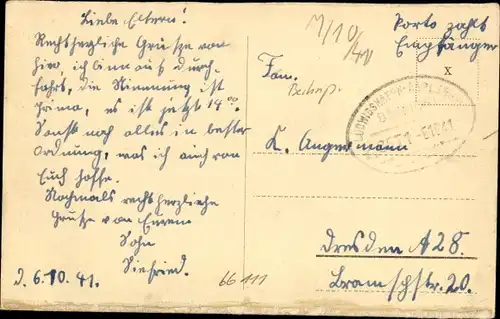 Liebe Eltern!
Rechtherzliche Grüsse von
hier, ich bin auf durch-
fahrt, die Stimmung ist
prima, es ist jetzt 14 00.
Sonst noch alles in bester
Ordnung, was ich auch von
Euch hoffe.
Nochmals rechtherzliche
Grüsse von Eurem
Sohn
Siefried.
D. 6.10.41.
66 111
M/10/41
Porto zahlt
Empfänger
x
Fam.
K. Angermann
Dresden A 28.
Bramschstr. 20.